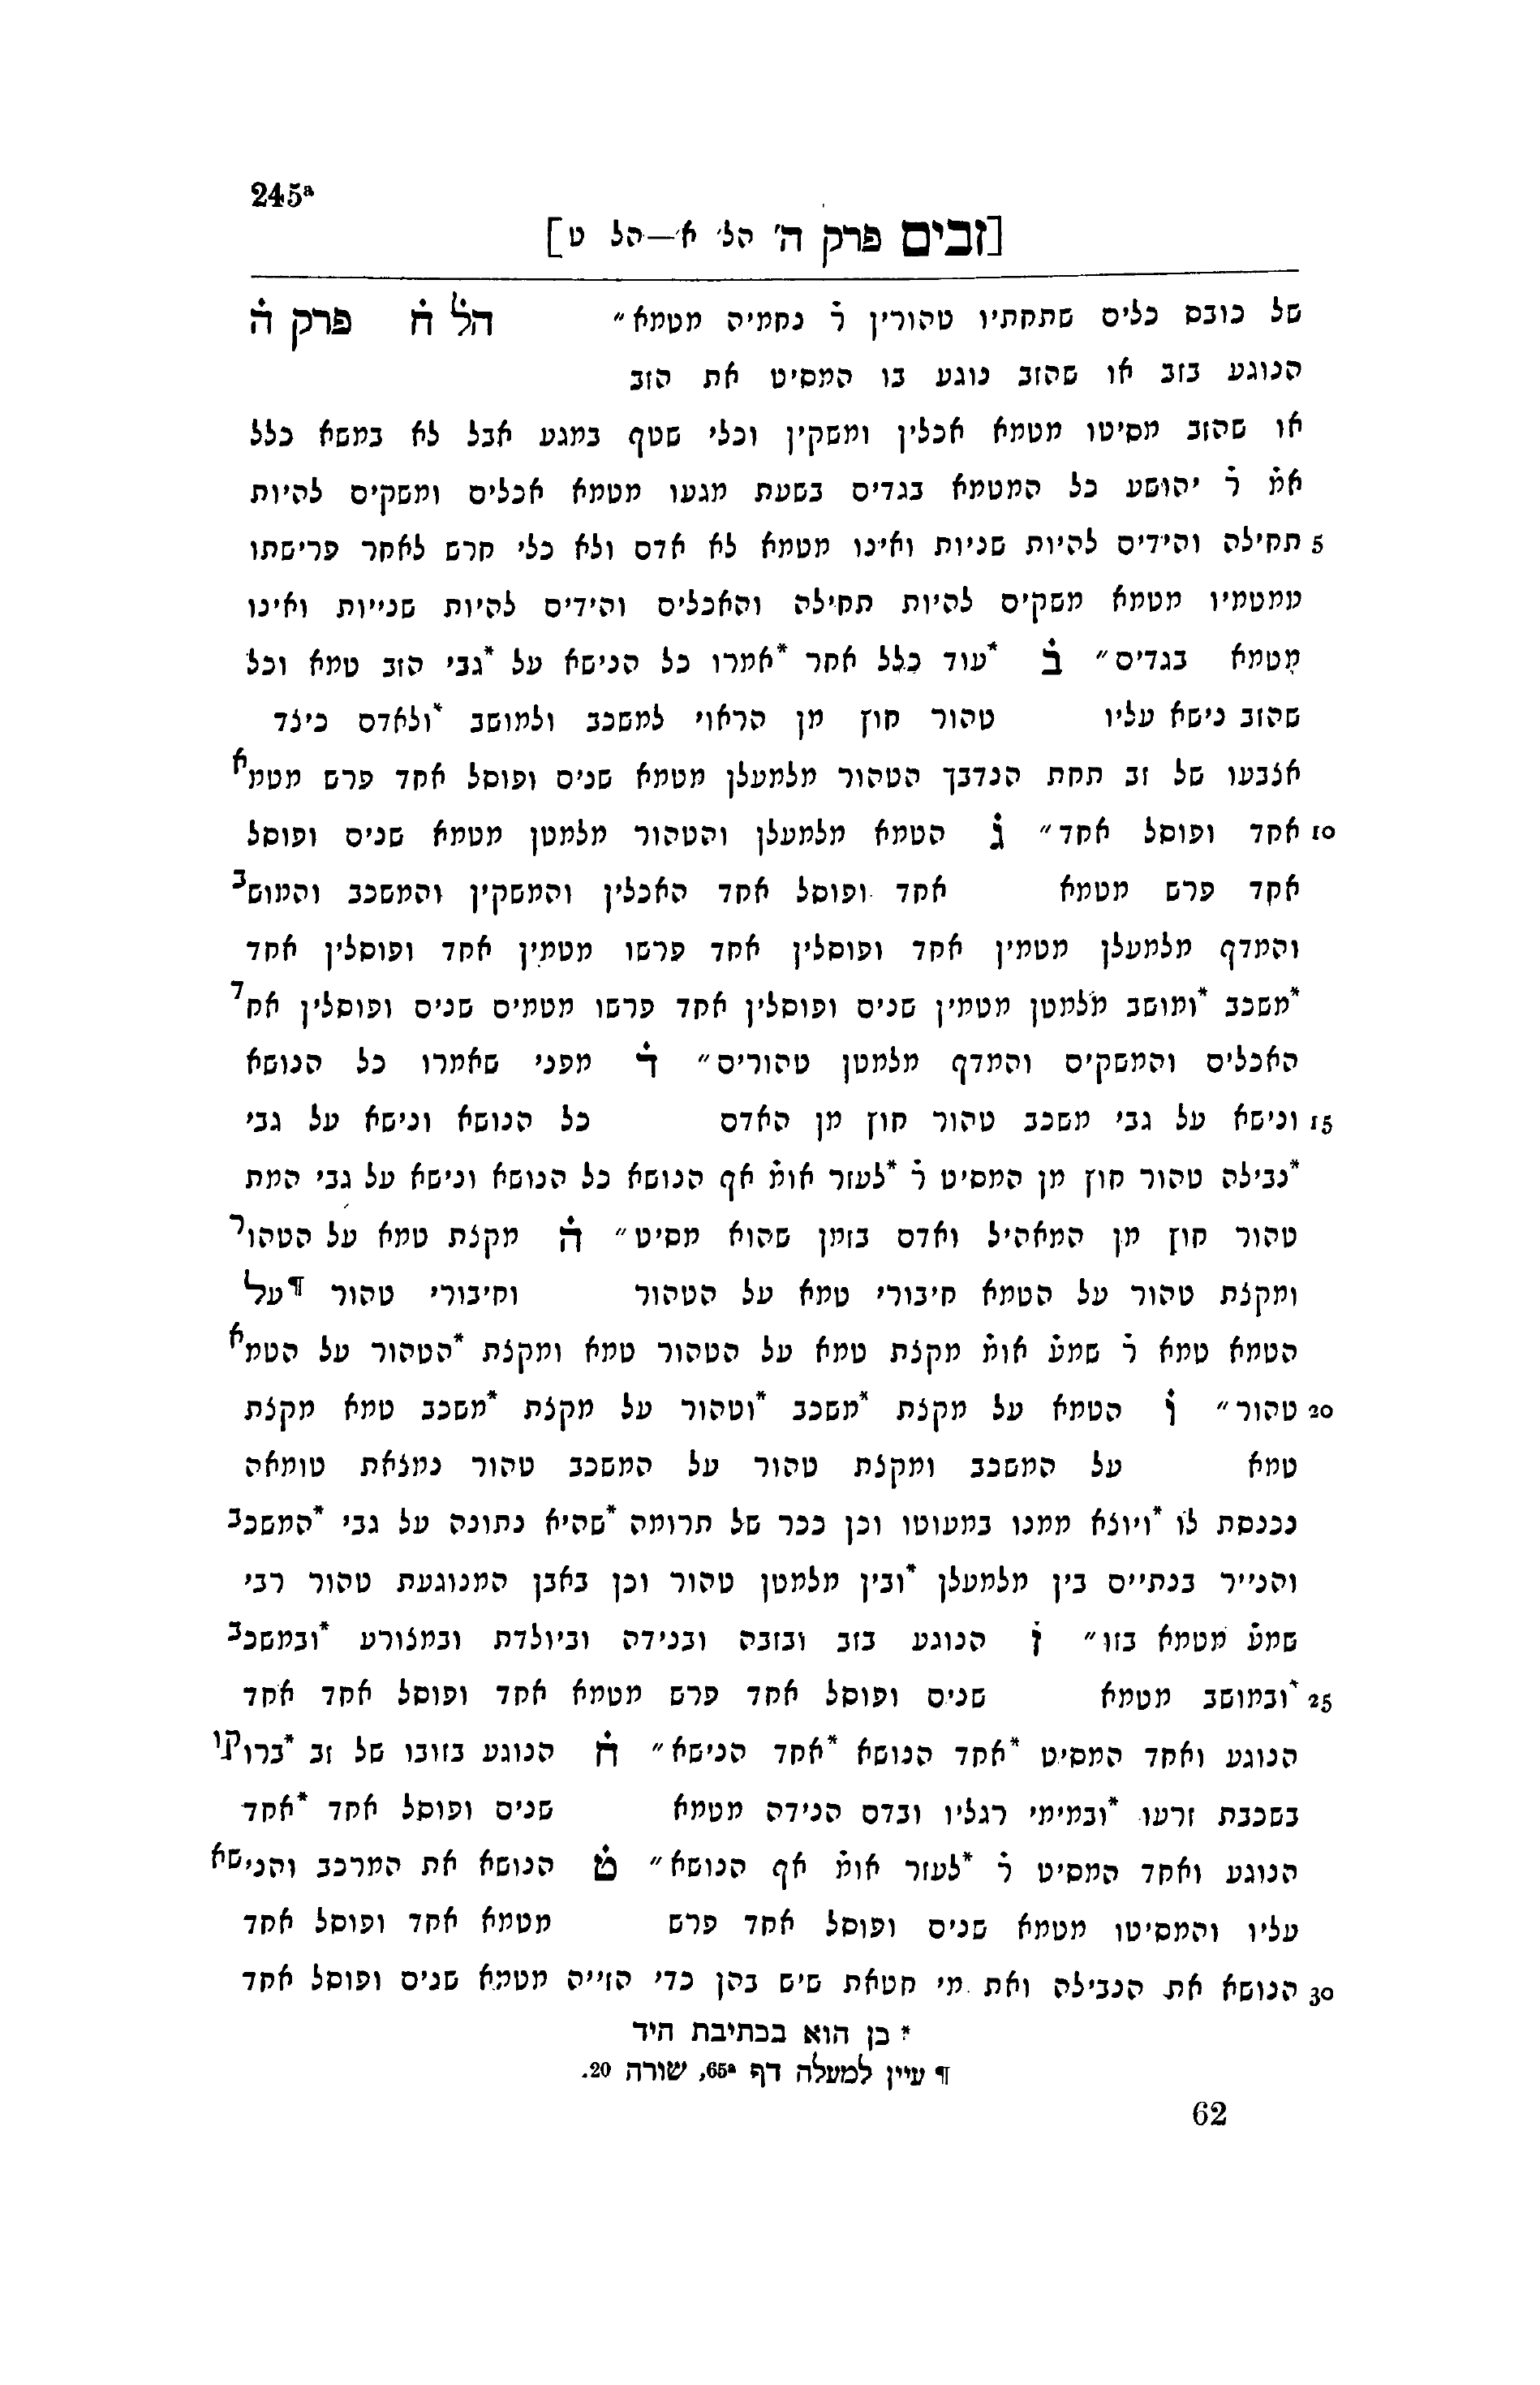 245ª
[זבים פרק ה' הל' א'—הל ט]
של כובס כלים שתחתיו טהורין ר̇ נחמיה מטמא״ הל̇ ח̇ פרק ה̇
הנוגע בזב או שהזב נוגע בו המסיט את הזב
או שהזב מסיטו מטמא אכלין ומשקין וכלי שטף במגע אבל לא במשא כלל
אמ̇ ר̇ יהושע כל המטמא בגדים בשעת מגעו מטמא אכלים ומשקים להיות
5 תחילה והידים להיות שניות ואינו מטמא לא אדם ולא כלי חרש לאחר פרישתו
ממטמיו מטמא משקים להיות תחילה והאכלים והידים להיות שנייות ואינו
מטמא בגדים״ ב̇ *עוד כלל אחר *אמרו כל הנישא על *גבי הזב טמא וכל
שהזב נישא עליו טהור חוץ מן הראוי למשכב ולמושב *ולאדם כיצד
אצבעו של זב תחת הנדבך הטהור מלמעלן מטמא שנים ופוסל אחד פרש מטמא
10 אחד ופוסל אחד״ ג̇ הטמא מלמעלן והטהור מלמטן מטמא שנים ופוסל
אחד פרש מטמא אחד ופוסל אחד האכלין והמשקין והמשכב והמושב
והמדף מלמעלן מטמין אחד ופוסלין אחד פרשו מטמין אחד ופוסלין אחד
*משכב *ומושב מלמטן מטמין שנים ופוסלין אחד פרשו מטמים שנים ופוסלין אחד
האכלים והמשקים והמדף מלמטן טהורים״ ד̇ מפני שאמרו כל הנושא
15 ונישא על גבי משכב טהור חוץ מן האדם כל הנושא ונישא על גבי
*נבילה טהור חוץ מן המסיט ר̇ *לעזר אומ̇ אף הנושא כל הנושא ונישא על גבי המת
טהור חוץ מן המאהיל ואדם בזמן שהוא מסיט״ ה̇ מקצת טמא על הטהור
ומקצת טהור על הטמא חיבורי טמא על הטהור וחיבורי טהור ¶על
הטמא טמא ר̇ שמע̇ אומ̇ מקצת טמא על הטהור טמא ומקצת *הטהור על הטמא
20 טהור״ ו̇ הטמא על מקצת *משכב *וטהור על מקצת *משכב טמא מקצת
טמא על המשכב ומקצת טהור על המשכב טהור נמצאת טומאה
נכנסת לו *ויוצא ממנו במעוטו וכן ככר של תרומה *שהיא נתונה על גבי *המשכב
והנייר בנתיים בין מלמעלן *ובין מלמטן טהור וכן באבן המנוגעת טהור רבי
שמע̇ מטמא בזו״ ז̇ הנוגע בזב ובזבה ובנידה וביולדת ובמצורע *ובמשכב
25 *ובמושב מטמא שנים ופוסל אחד פרש מטמא אחד ופוסל אחד אחד
הנוגע ואחד המסיט *אחד הנושא *אחד הנישא״ ח̇ הנוגע בזובו של זב *ברוקו
בשכבת זרעו *ובמימי רגליו ובדם הנידה מטמא שנים ופוסל אחד *אחד
הנוגע ואחד המסיט ר̇ *לעזר אומ̇ אף הנושא״ ט̇ הנושא את המרכב והנישא
עליו והמסיטו מטמא שנים ופוסל אחד פרש מטמא אחד ופוסל אחד
30 הנושא את הנבילה ואת מי חטאת שיש בהן כדי הזייה מטמא שנים ופוסל אחד
* כן הוא בכתיבת היד
¶ עיין למעלה דף 65ª, שורה 20.
62